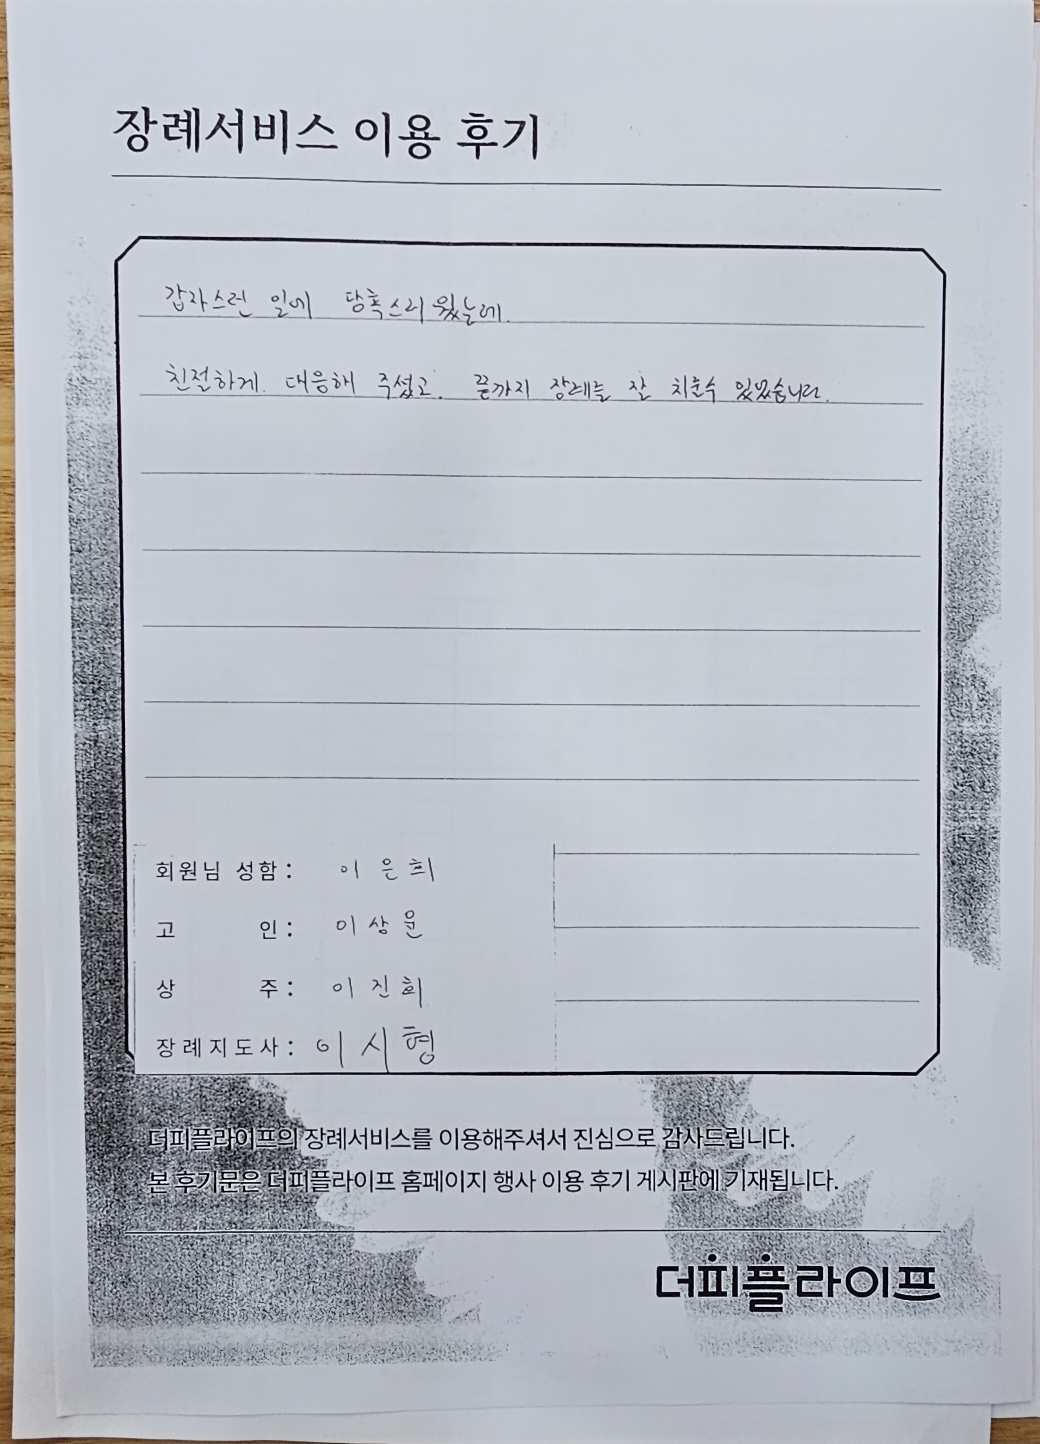 장례서비스 이용 후기
갑자스런 일에 당혹스러웠는데.
친절하게. 대응해 주셨고. 끝까지 장례를 잘 치를수 있었습니다.
회원님 성함 : 이은희
고 인 : 이상운
상 주 : 이진희
장례지도사 : 이시형
더피플라이프의 장례서비스를 이용해주셔서 진심으로 감사드립니다.
본 후기문은 더피플라이프 홈페이지 행사 이용 후기 게시판에 기재됩니다.
더피플라이프